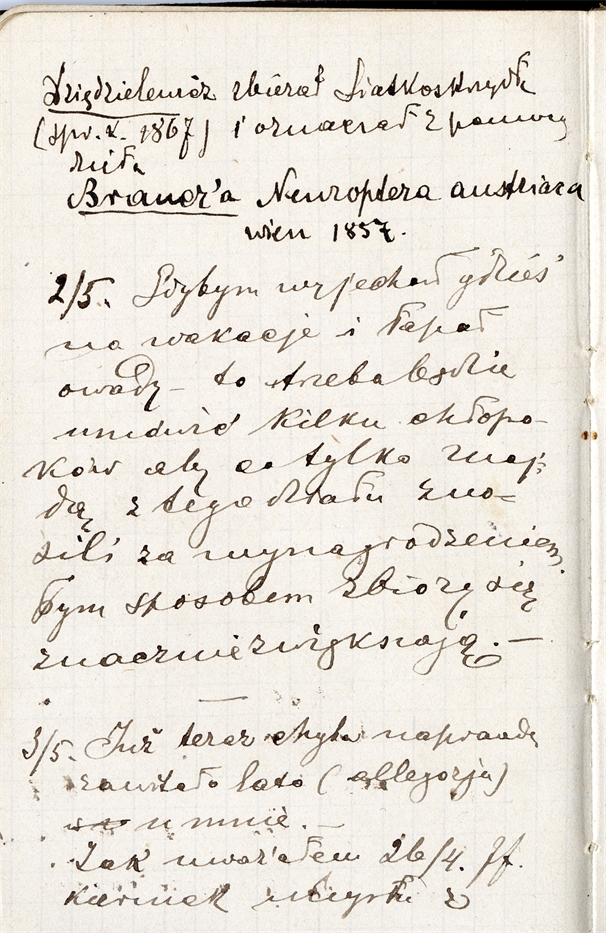 Dziędzielewicz zbierał Siatkoskrzydłe
(spr. k. 1867) i oznaczał z pomocą
dzieła
Brauer'a Neuroptera austriaca
wien 1857.
2/5. Gdybym wyjechał gdzieś
na wakacje i łapał
owady – to trzeba będzie
umówić kilku chłopa-
ków aby co tylko znaj-
dą z tego działu zno-
sili za wynagrodzeniem.
Tym sposobem zbiory się
znacznie zwiększają. —
3/5. Już teraz chyba naprawdę
zawitało lato (allegorja)
u mnie. —
Jak uważałem 26/4. Jf.
kierunek